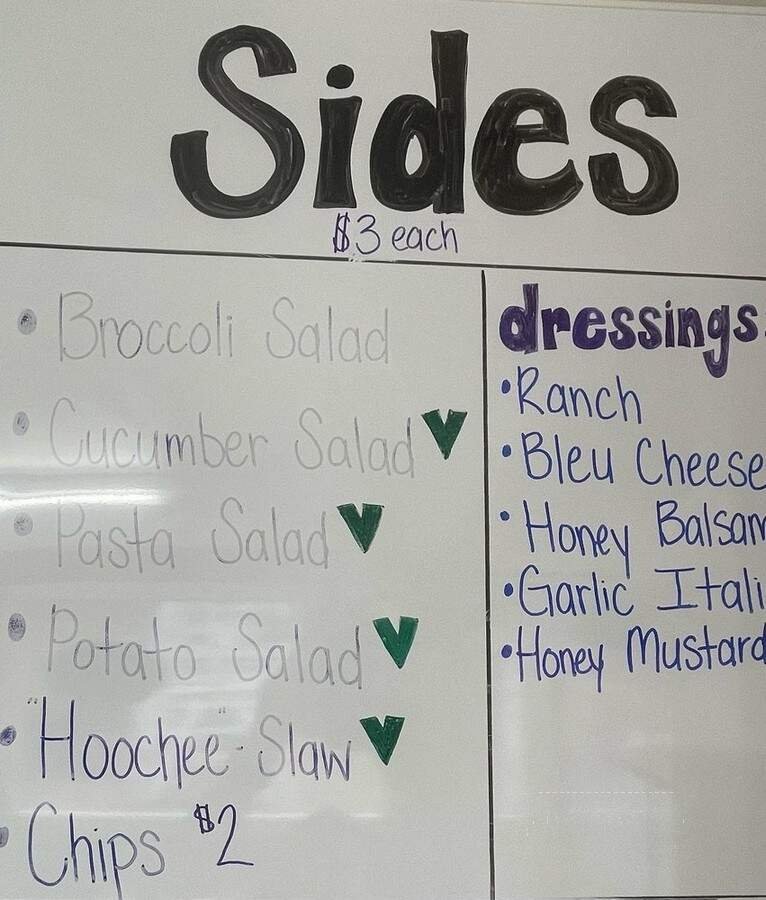 Sides
$3 each
• Broccoli Salad
• Cucumber Salad V
• Pasta Salad V
• Potato Salad V
• "Hoochee" Slaw V
• Chips $2
dressings:
• Ranch
• Bleu Cheese
• Honey Balsam
• Garlic Itali
• Honey Mustard